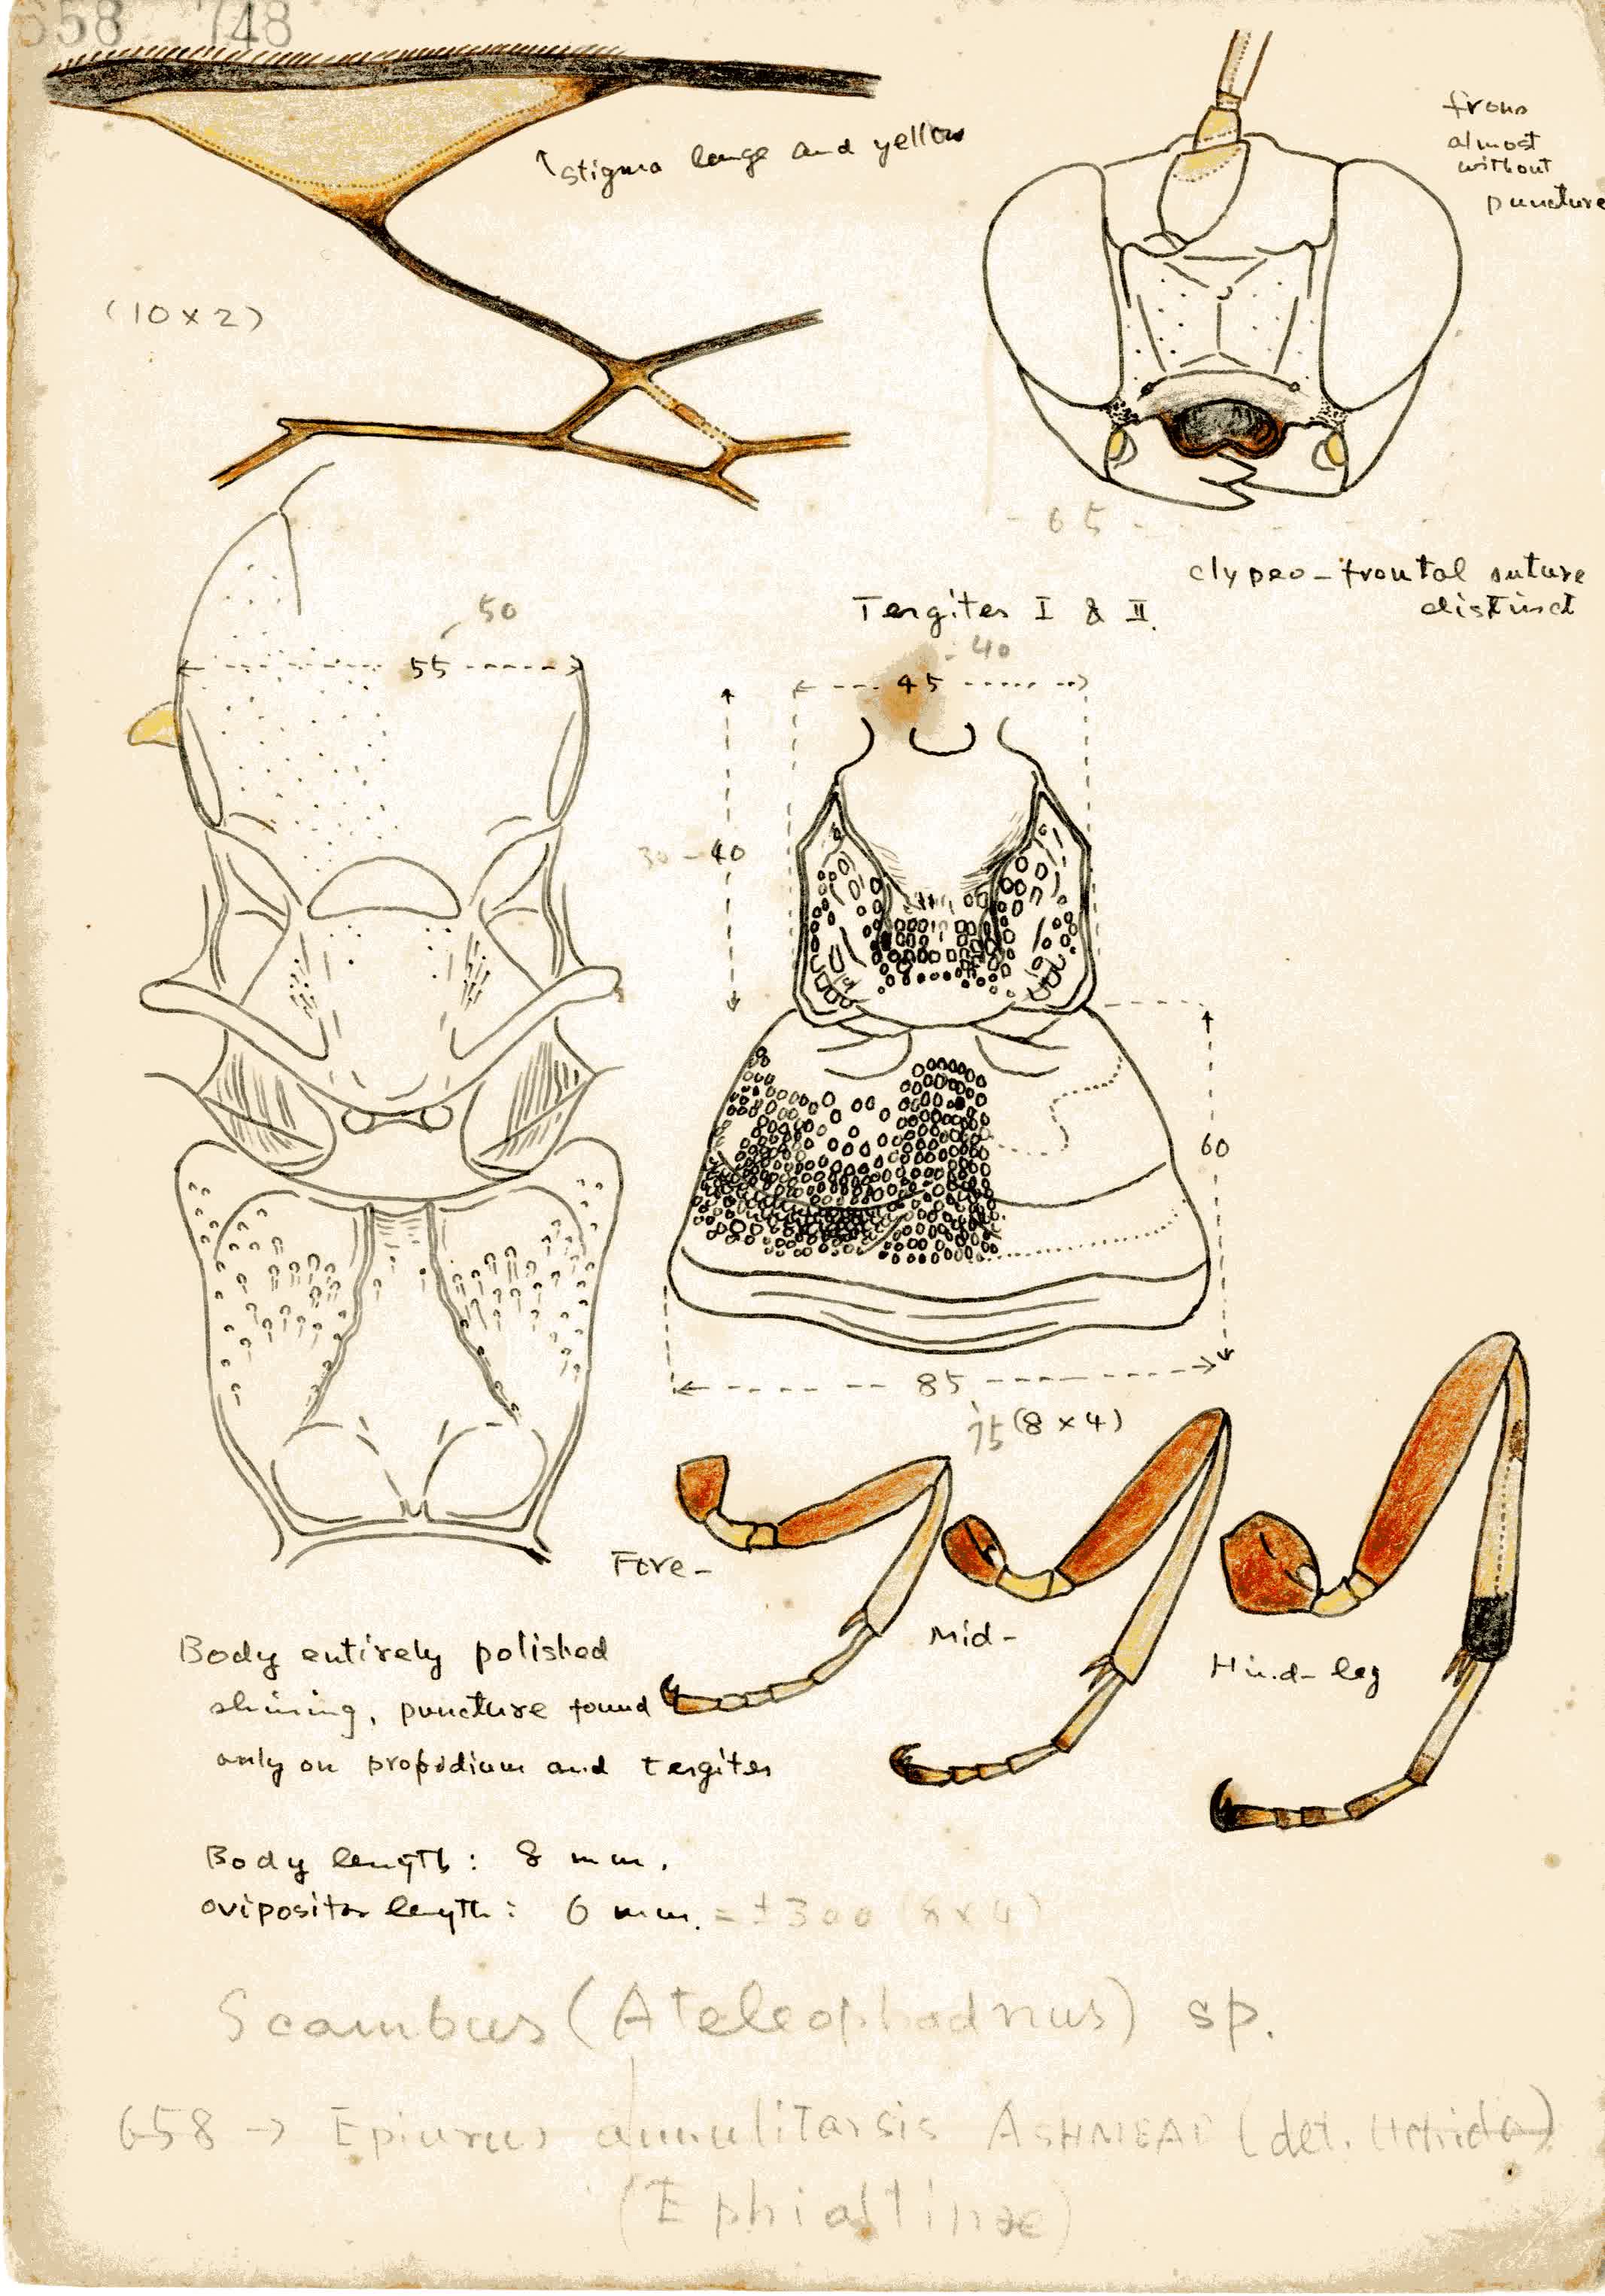 658 748
stigma large and yellow
frons
almost
without
puncture
(10 x 2)
65
clypeo-frontal suture
distinct
Tergites I & II.
50
55
40
45
30 - 40
60
85
75 (8 x 4)
Fore-
Mid-
Hind-leg
Body entirely polished
shining, puncture found
only on propodium and tergites
Body length: 8 mm.
ovipositor length: 6 mm. = ±300 (8 x 4)
Scambus (Ateleophadnus) sp.
658 → Epiurus annulitarsis ASHMEAD (det. Uchida)
(Ephialtinae)